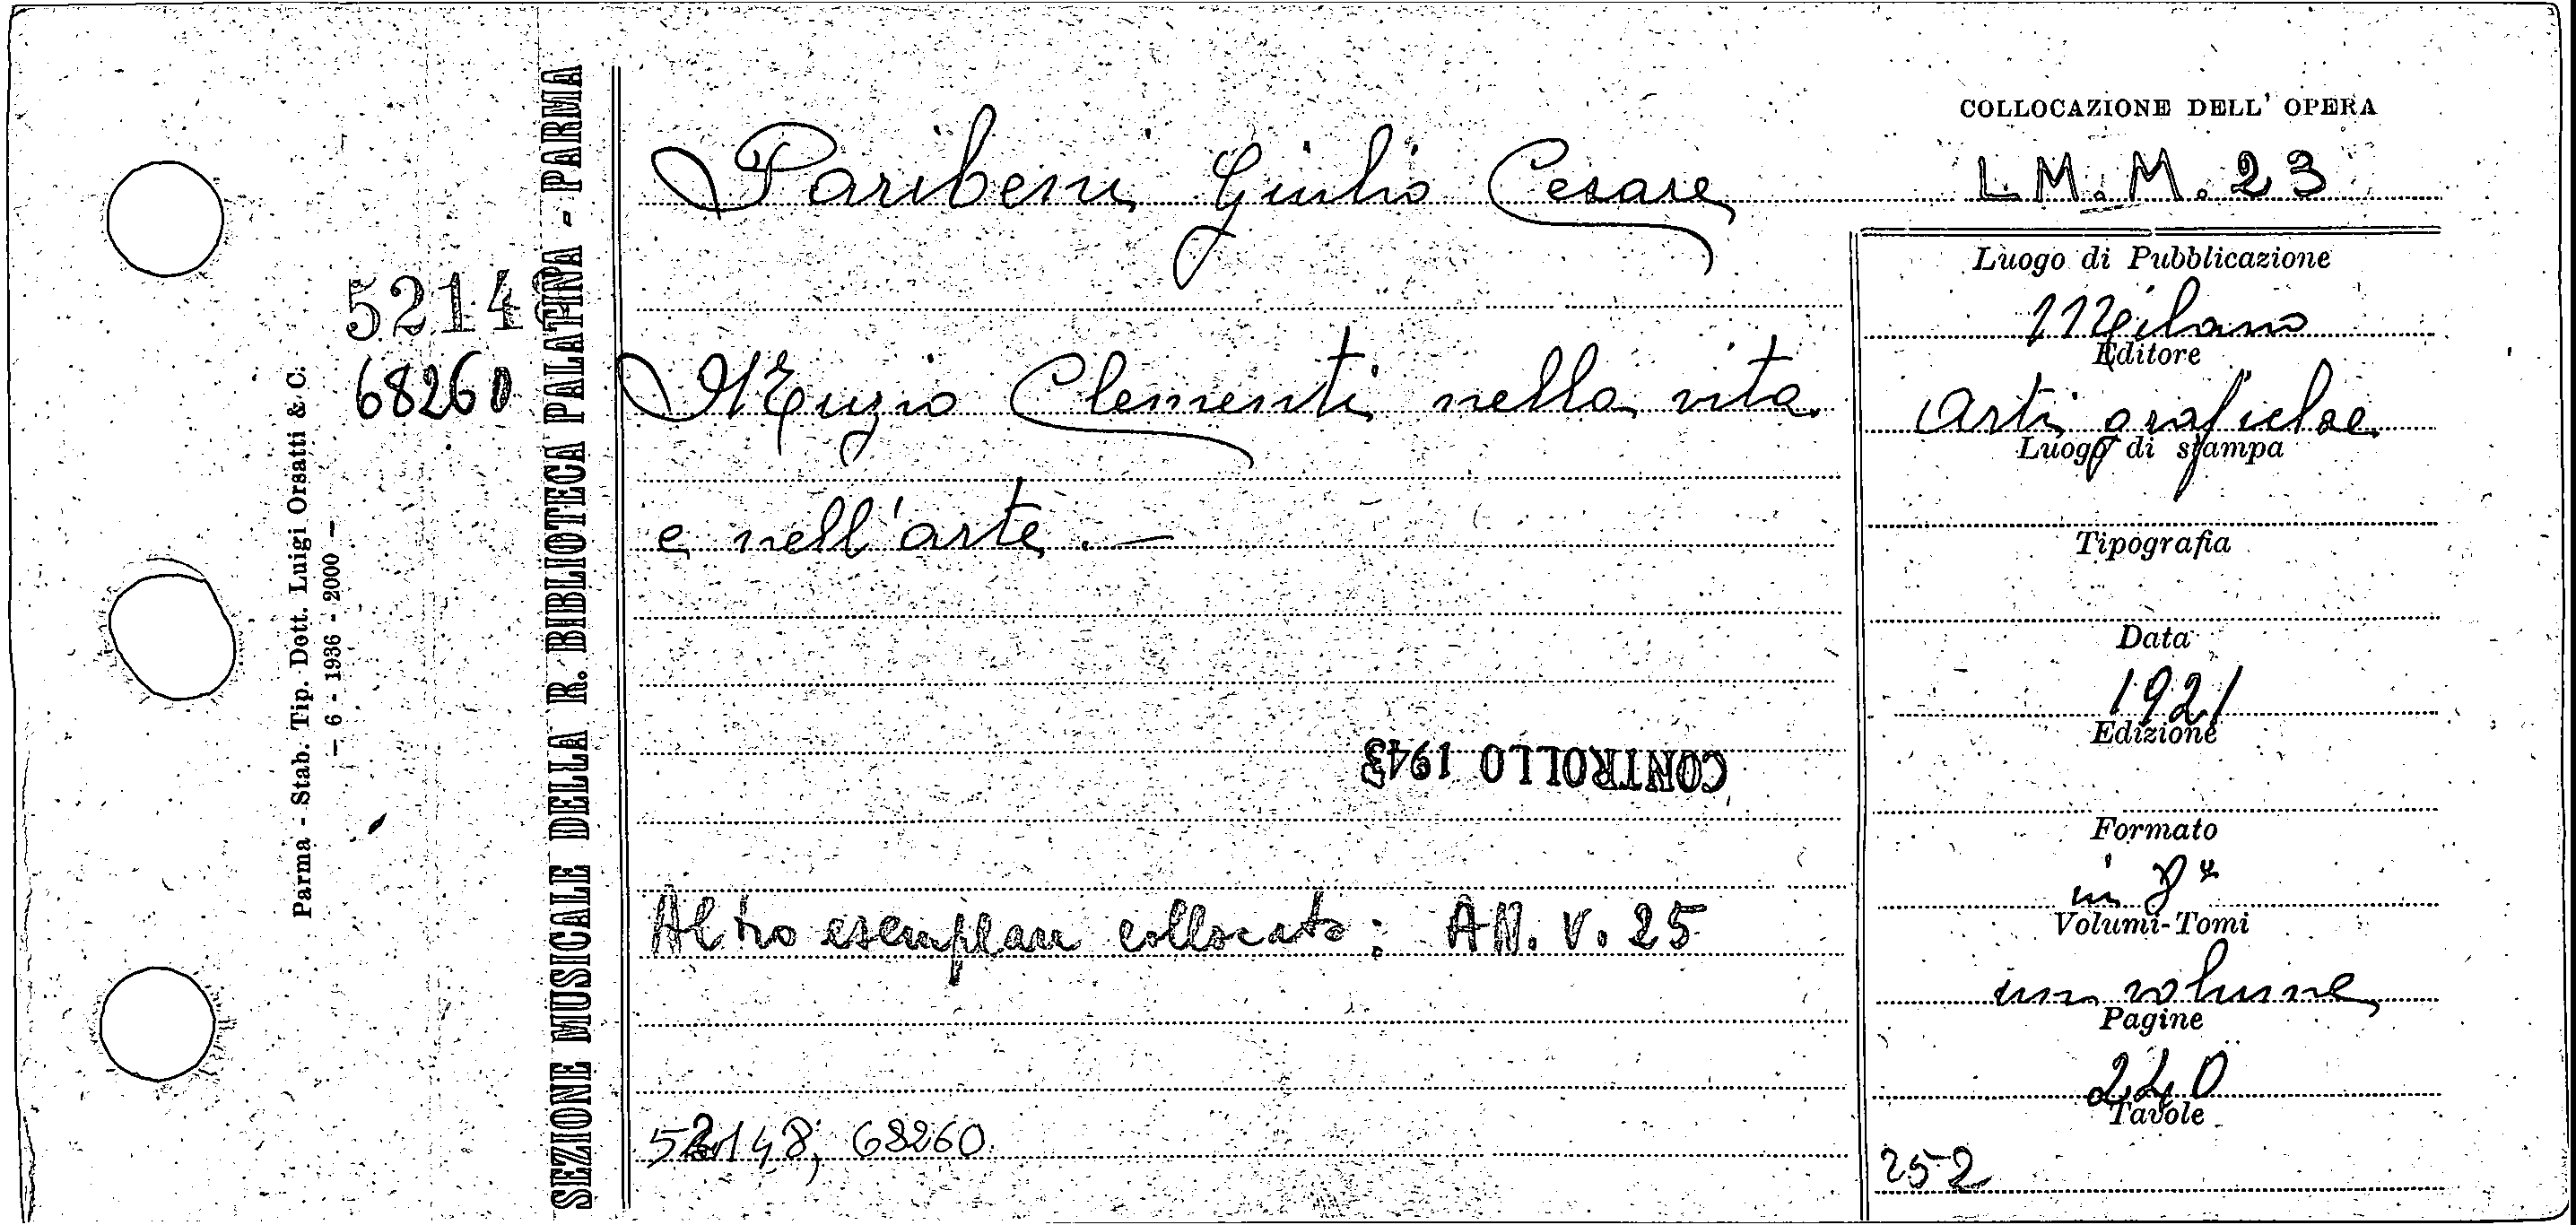 COLLOCAZIONE DELL' OPERA
Paribeni Giulio Cesare
L.M.M.23
Luogo di Pubblicazione
Milano
Editore
Muzio Clementi nella vita
Arti grafiche
Luogo di stampa
e nell'arte.—
Tipografia
Data
1921
Edizione
CONTROLLO 1943
Formato
in 8º
Altro esemplare collocato: AN. V. 25
Volumi-Tomi
un volume
Pagine
240
Tavole
52148; 68260
252
52148
68260
Parma - Stab. Tip. Dott. Luigi Orsatti & C.
— 6 - 1936 - 2000 —
SEZIONE MUSICALE DELLA R. BIBLIOTECA PALATINA - PARMA